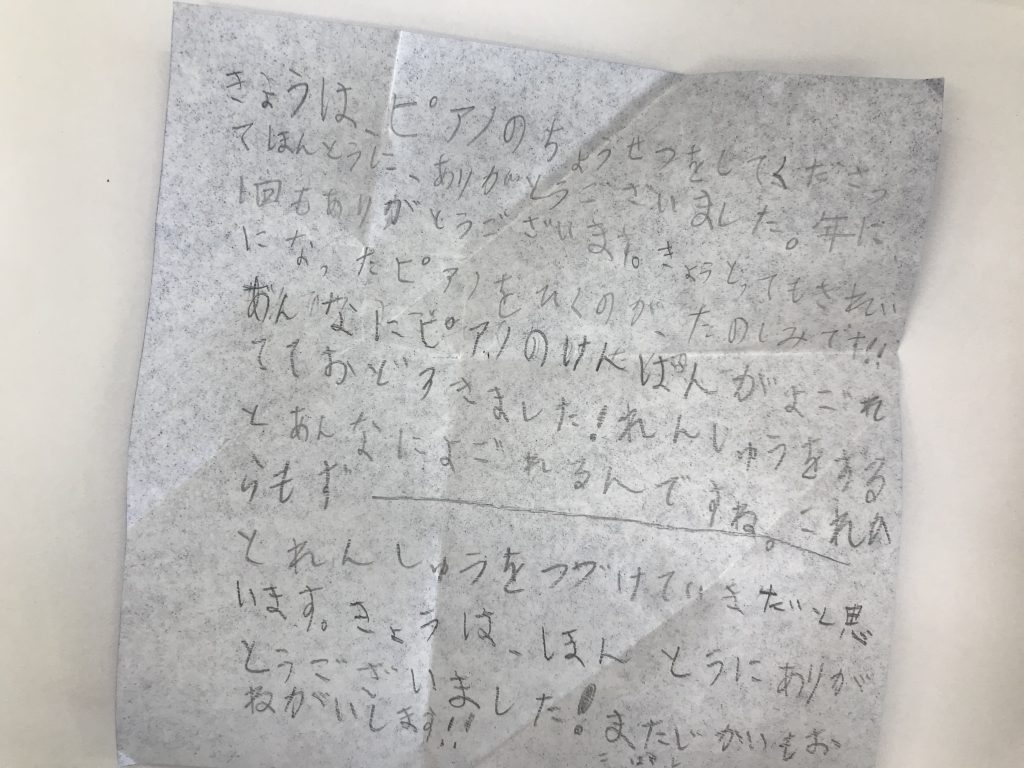 きょうは、ピアノのちょうせつをしてくださっ
てほんとうに、ありがとうございました。年に
1回もありがとうございます。きょうとってもきれい
になったピアノをひくのが、たのしみです!!
あんなにピアノのけんばんがよごれ
てておどろきました!れんしゅうをする
とあんなによごれるんですね。これか
らもず
とれんしゅうをつづけていきたいと思
います。きょうは、ほんとうにありが
とうございました!またじかいもお
ねがいします!!